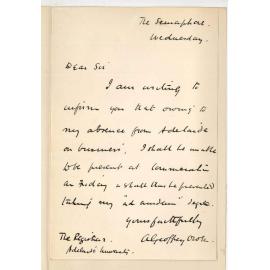 The Semaphore.
Wednesday.
Dear Sir
I am writing to
inform you that owing to
my absence from Adelaide
on business, I shall be unable
to be present at Commemoration
on Friday & shall thus be prevented
taking my ad eundem degree.
Yours faithfully
The Registrar
Adelaide University.